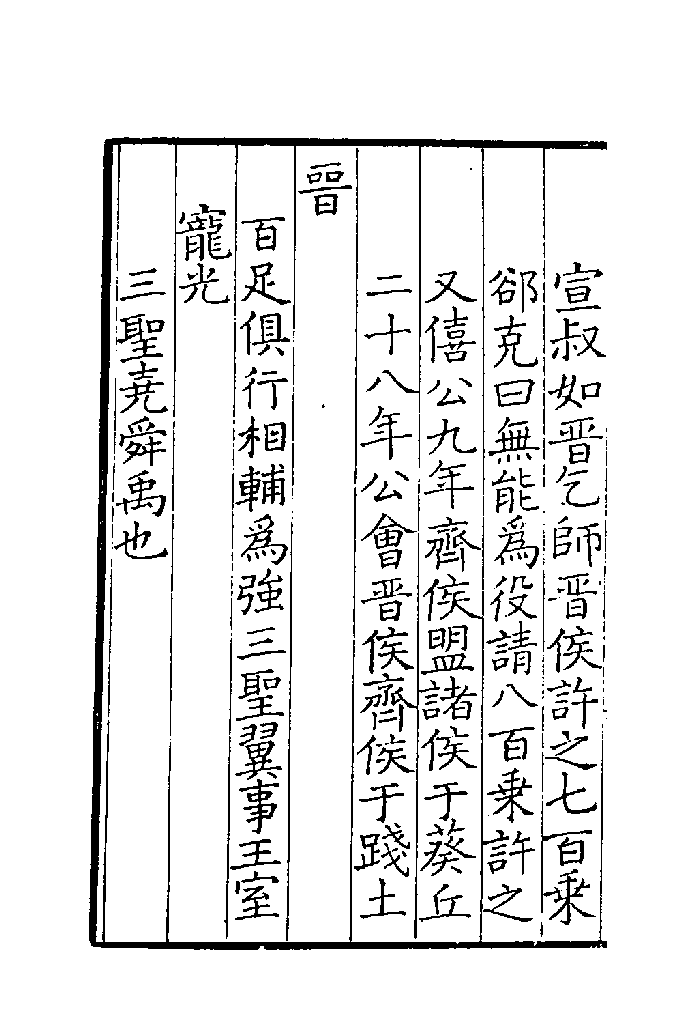 宣叔如晋乞師晋侯許之七百乗
郤克曰無能為役請八百乗許之
又僖公九年齊侯盟諸侯于葵丘
二十八年公會晋侯齊侯于踐土
晉
百足俱行相輔為強三聖翼事王室
寵光
三聖堯舜禹也